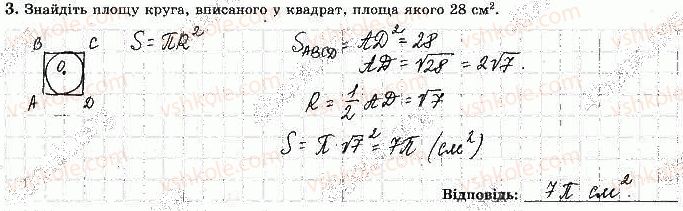 3. Знайдіть площу круга, вписаного у квадрат, площа якого 28 см².
B C
O
A D
S = πR²
S_ABCD = AD² = 28
AD = √28 = 2√7.
R = 1/2 AD = √7
S = π·√7² = 7π (см²)
Відповідь: 7π см².